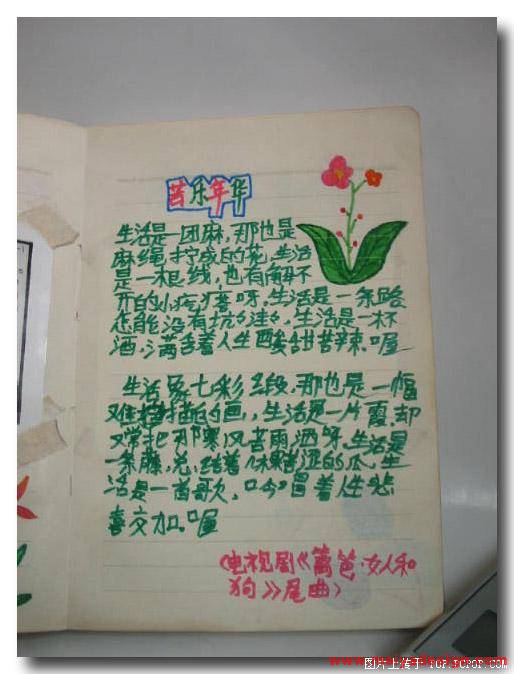 苦乐年华
生活是一团麻,那也是
麻绳拧成的花,生活
是一根线,也有解不
开的小疙瘩呀,生活是一条路
怎能没有坑坑洼洼,生活是一杯
酒,满含着人生酸甜苦辣,喔
生活象七彩缎,那也是一幅
难描的画,生活是一片霞,却
又常把那寒风苦雨洒呀,生活是
一条藤,总结着几颗苦涩的瓜,生
活是一首歌,吟唱着人生悲
喜交加,喔
〈电视剧《篱笆·女人和
狗》尾曲〉
图片上传于 Top.orzor.com